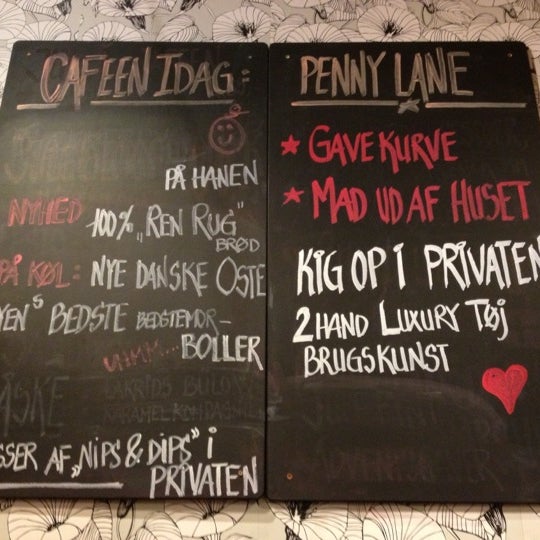 CAFEEN IDAG:
PÅ HANEN
NYHED 100% "REN RUG"
BRØD
PÅ KØL: NYE DANSKE OSTE
BEDSTE BEDSTEMOR-
UHMM... BOLLER
LAKRIDS
AF "NIPS & DIPS" i
PRIVATEN
PENNY LANE
GAVEKURVE
MAD UD AF HUSET
KIG OP I PRIVATEN
2HAND LUXURY TØJ
BRUGSKUNST